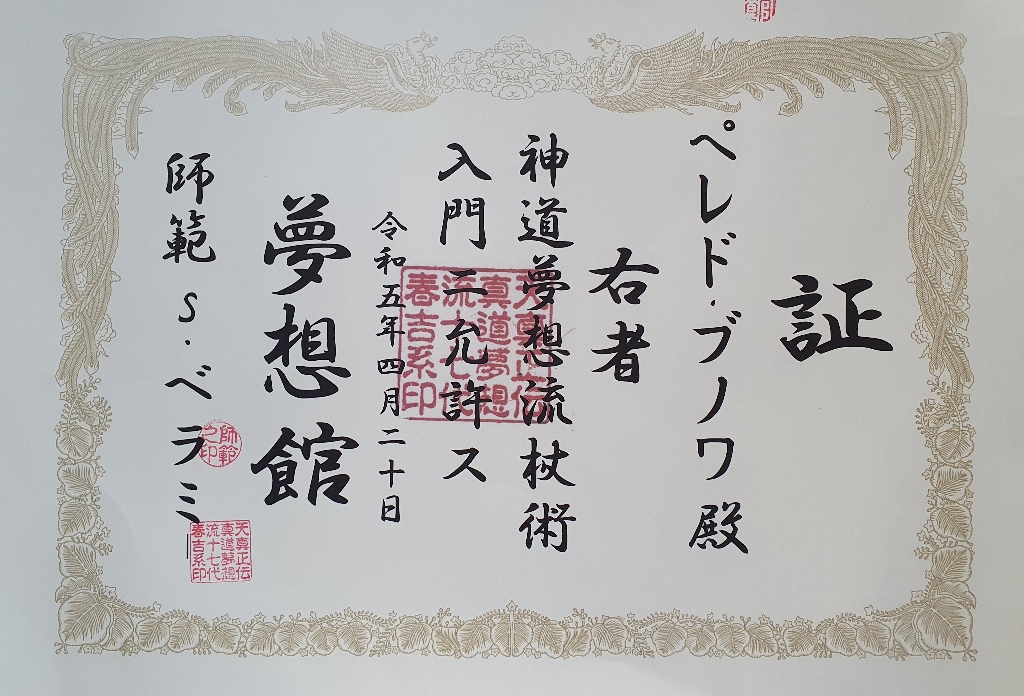 証
ペレド・ブノワ殿
右者
神道夢想流杖術
入門ニ允許ス
令和五年四月二十日
夢想館
師範 S・ベラミー
天真正伝
真道夢想
流十七代
春吉系印
師範
之印
天真正伝
真道夢想
流十七代
春吉系印